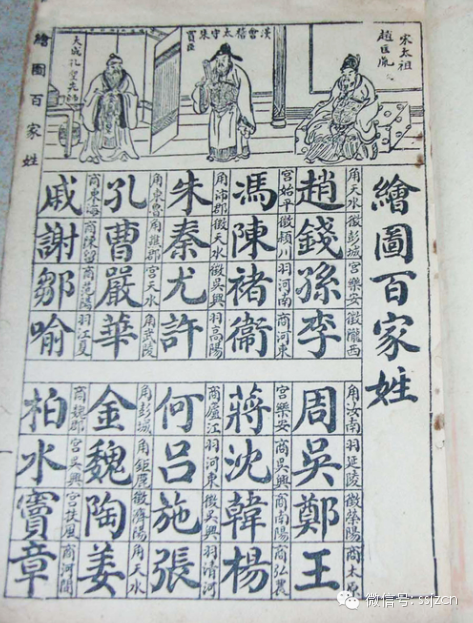 繪圖百家姓
宋太祖
趙匡胤
漢會稽太守朱
買臣
繪圖百家姓
角天水 徵彭城 宮樂安 徵隴西
趙錢孫李
宮始平 徵潁川 羽河南 商河東
馮陳褚衛
角沛郡 徵天水 徵吳興 羽高陽
朱秦尤許
角東魯 角譙郡 宮天水 角武陵
孔曹嚴華
商東海 商陳留 商范陽 羽江夏
戚謝鄒喻
角汝南 羽延陵 徵滎陽 商太原
周吳鄭王
宮樂安 商吳興 商南陽 商弘農
蔣沈韓楊
商廬江 羽河東 徵吳興 羽清河
何呂施張
角彭城 角鉅鹿 徵濟陽 角天水
金魏陶姜
商魏郡 宮吳興 宮扶風 商河間
柏水竇章
微信号: ssjzcn